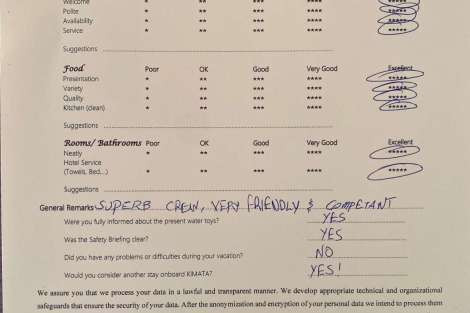 Welcome * ** *** **** *****
Polite * ** *** **** *****
Availability * ** *** **** *****
Service * ** *** **** *****
Suggestions
Food Poor OK Good Very Good Excellent
Presentation * ** *** **** *****
Variety * ** *** **** *****
Quality * ** *** **** *****
Kitchen (clean) * ** *** **** *****
Suggestions
Rooms/ Bathrooms Poor OK Good Very Good Excellent
Neatly * ** *** **** *****
Hotel Service
(Towels, Bed...) * ** *** **** *****
Suggestions
General Remarks SUPERB CREW, VERY FRIENDLY & COMPETANT
Were you fully informed about the present water toys? YES
Was the Safety Briefing clear? YES
Did you have any problems or difficulties during your vacation? NO
Would you consider another stay onboard KIMATA? YES!
We assure you that we process your data in a lawful and transparent manner. We develop appropriate technical and organizational
safeguards that ensure the security of your data. After the anonymization and encryption of your personal data we intend to process them